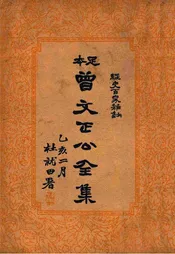 經史百家雜鈔
足本
曾文正公全集
乙亥二月
杜就田署